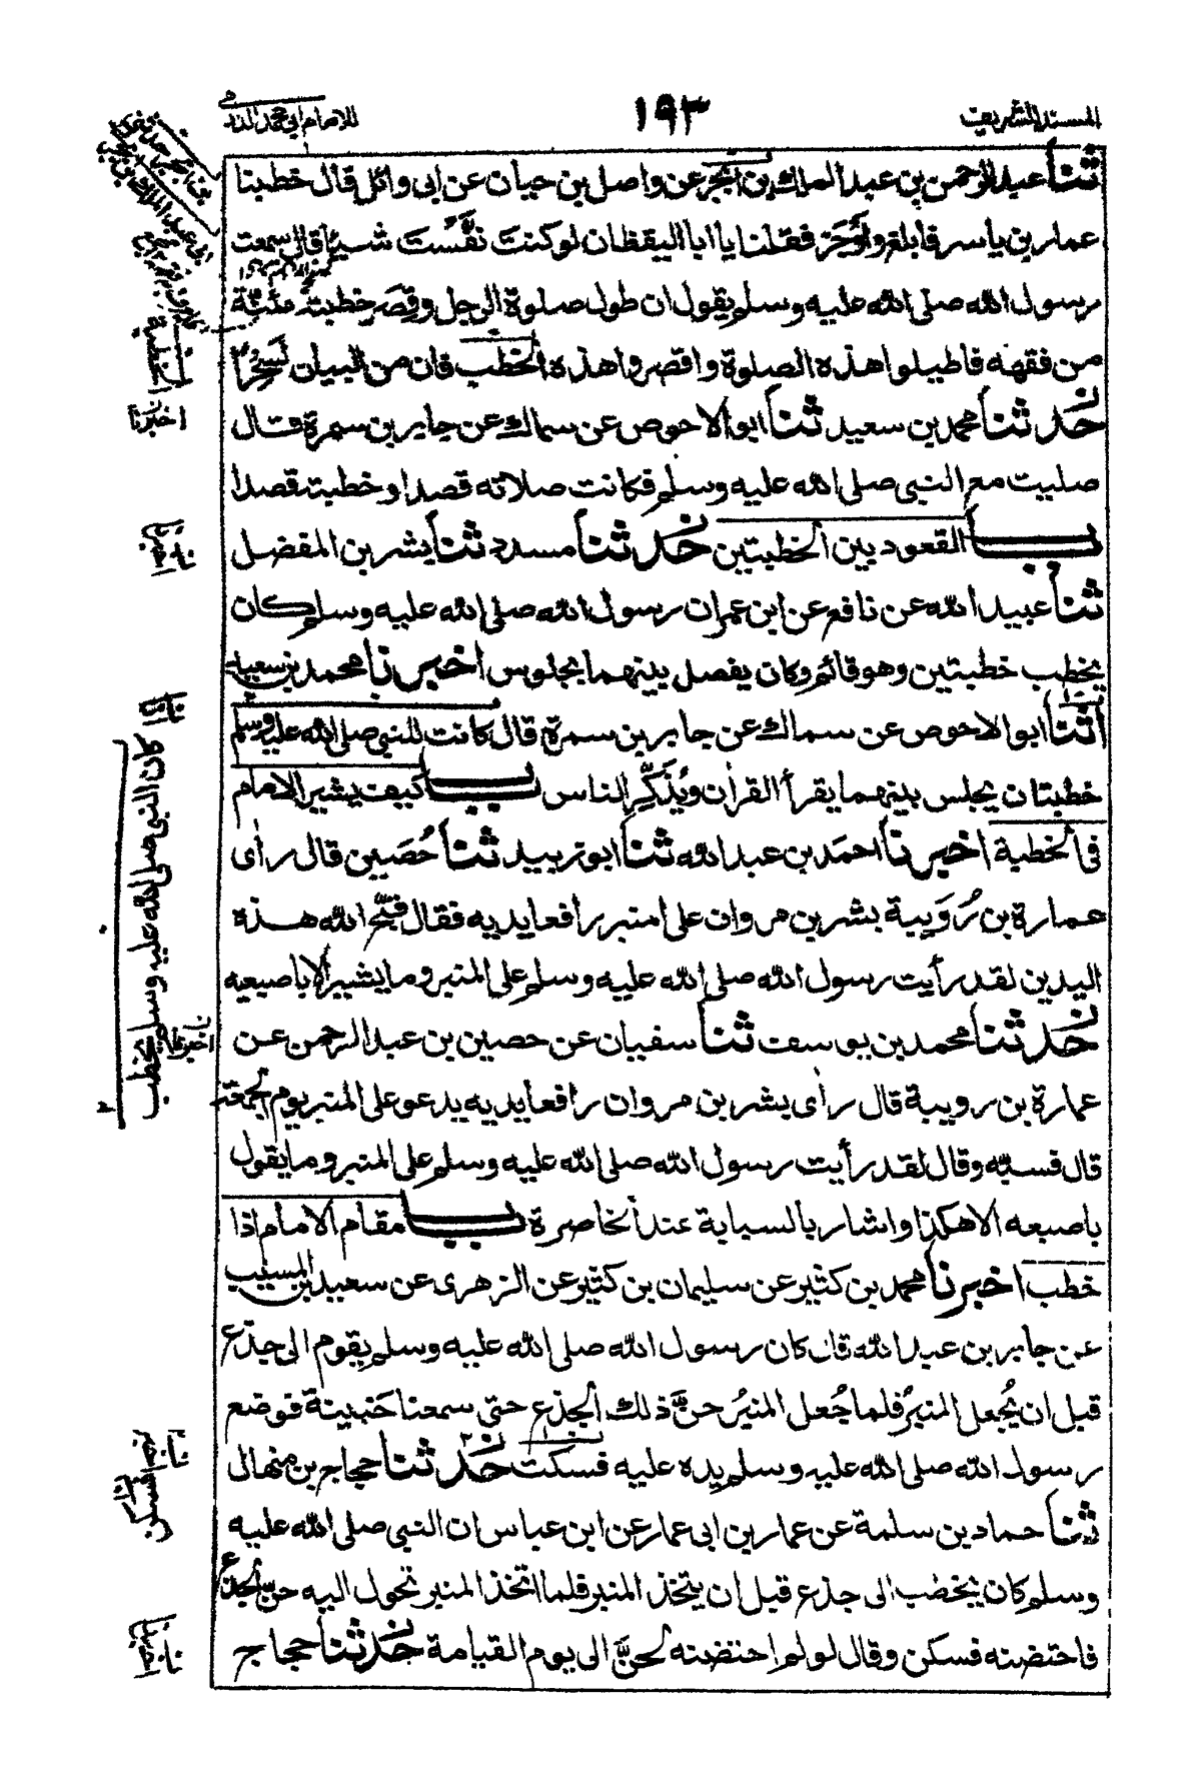 المسند الشريف
١٩٣
للامام ابى محمد الدارمى
ثنا عبد الرحمن بن عبد الملك بن ابجر عن واصل بن حيان عن ابى وائل قال خطبنا
عمار بن ياسر فابلغ واوجز فقلنا يا ابا اليقظان لو كنت نفّست شيئا قال سمعت
رسول الله صلى الله عليه وسلم يقول ان طول صلوة الرجل وقِصَر خطبته مئنّة
من فقهه فاطيلوا هذه الصلوة واقصروا هذه الخطب فان من البيان لَسِحْرًا
حدثنا محمد بن سعيد ثنا ابو الاحوص عن سماك عن جابر بن سمرة قال
صليت مع النبى صلى الله عليه وسلم فكانت صلاته قصدا وخطبته قصدا
باب القعود بين الخطبتين حدثنا مسدد ثنا بشر بن المفضل
ثنا عبيد الله عن نافع عن ابن عمر ان رسول الله صلى الله عليه وسلم كان
يخطب خطبتين وهو قائم وكان يفصل بينهما بجلوس اخبرنا محمد بن سعيد
ثنا ابو الاحوص عن سماك عن جابر بن سمرة قال كانت للنبى صلى الله عليه وسلم
خطبتان يجلس بينهما يقرأ القرأن ويُذَكِّر الناس باب كيف يشير الامام
فى الخطبة اخبرنا احمد بن عبد الله ثنا ابو زبيد ثنا حُصَين قال رأى
عمارة بن رُوَيبة بشر بن مروان على المنبر رافعا يديه فقال قبّح الله هذه
اليدين لقد رأيت رسول الله صلى الله عليه وسلم على المنبر وما يشير الا باصبعه
حدثنا محمد بن يوسف ثنا سفيان عن حصين بن عبد الرحمن عن
عمارة بن رويبة قال رأى بشر بن مروان رافعا يديه يدعو على المنبر يوم الجمعة
قال فسبّه وقال لقد رأيت رسول الله صلى الله عليه وسلم على المنبر وما يقول
باصبعه الا هكذا واشار بالسبابة عند الخاصرة باب مقام الامام اذا
خطب اخبرنا محمد بن كثير عن سليمان بن كثير عن الزهرى عن سعيد بن المسيب
عن جابر بن عبد الله قال كان رسول الله صلى الله عليه وسلم يقوم الى جذع
قبل ان يُجعل المنبر فلما جُعل المنبرُ حنّ ذلك الجذع حتى سمعنا حنينه فوضع
رسول الله صلى الله عليه وسلم يده عليه فسكت حدثنا حجاج بن منهال
ثنا حماد بن سلمة عن عمار بن ابى عمار عن ابن عباس ان النبى صلى الله عليه
وسلم كان يخطب الى جذع قبل ان يتخذ المنبر فلما اتخذ المنبر تحول اليه حنّ الجذع
فاحتضنه فسكن وقال لو لم احتضنه لحنَّ الى يوم القيامة حدثنا حجاج
الخطبة
اخبرنا
كان النبى صلى الله عليه وسلم يخطب
فسكن